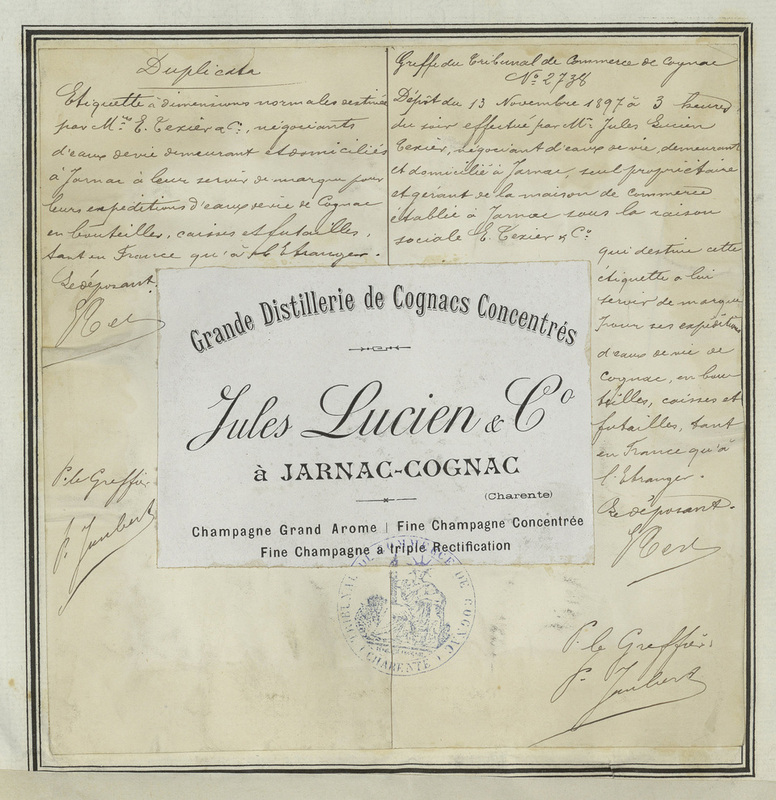 Duplicata
Etiquette à dimensions normales destinée
par M.rs E. Texier & Cie, négociants
d'eaux de vie demeurant et domiciliés
à Jarnac à leur servir de marque pour
leurs expéditions d'eaux de vie de Cognac
en bouteilles, caisses et futailles,
tant en France qu'à l'Etranger.
Le déposant.
P. le Greffier
P. Jaubert
Greffe du Tribunal de Commerce de Cognac
No 2738
Dépôt du 13 Novembre 1897 à 3 heures
du soir effectué par Mr. Jules Lucien
Texier, négociant d'eaux de vie, demeurant
et domicilié à Jarnac, seul propriétaire
et gérant de la maison de commerce
établie à Jarnac sous la raison
sociale E. Texier & Co
qui destine cette
étiquette à lui
servir de marque
pour ses expéditions
d'eaux de vie de
Cognac, en bou-
teilles, caisses et
futailles, tant
en France qu'à
l'Etranger.
Le déposant.
P. le Greffier
P. Jaubert
Grande Distillerie de Cognacs Concentrés
Jules Lucien & Co
à JARNAC-COGNAC
(Charente)
Champagne Grand Arome | Fine Champagne Concentrée
Fine Champagne a triple Rectification
TRIBUNAL DE COMMERCE DE COGNAC
(CHARENTE)